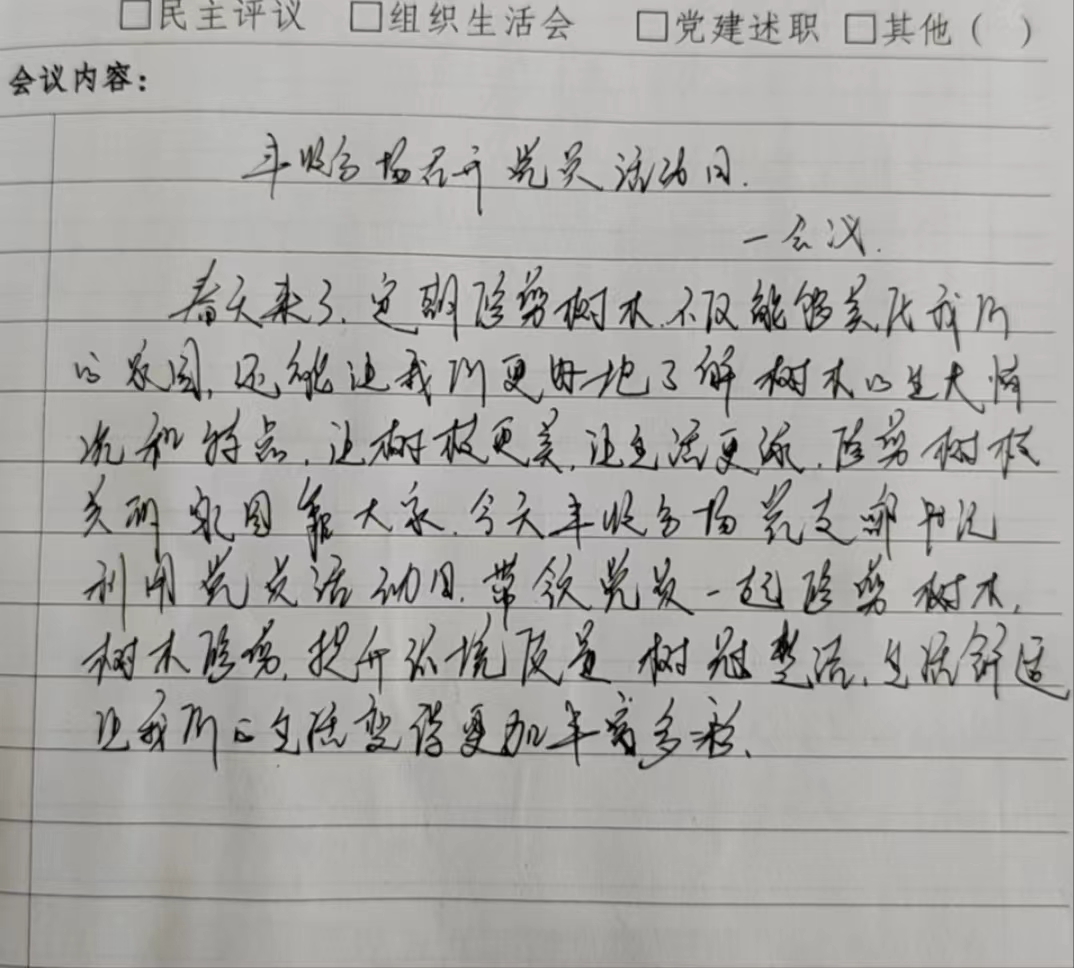 □民主评议 □组织生活会 □党建述职 □其他( )
会议内容:
丰收分场召开党员活动日.
一会议.
春天来了.定期修剪树木.不仅能够美化我们
的家园,还能让我们更好地了解树木的生长情
况和特点,让树枝更美,让生活更添.修剪树枝
美丽家园靠大家.今天丰收分场党支部书记
利用党员活动日.带领党员一起修剪树木,
树木修剪,提升环境质量 树冠整洁,生活舒适
让我们的生活变得更加丰富多彩、